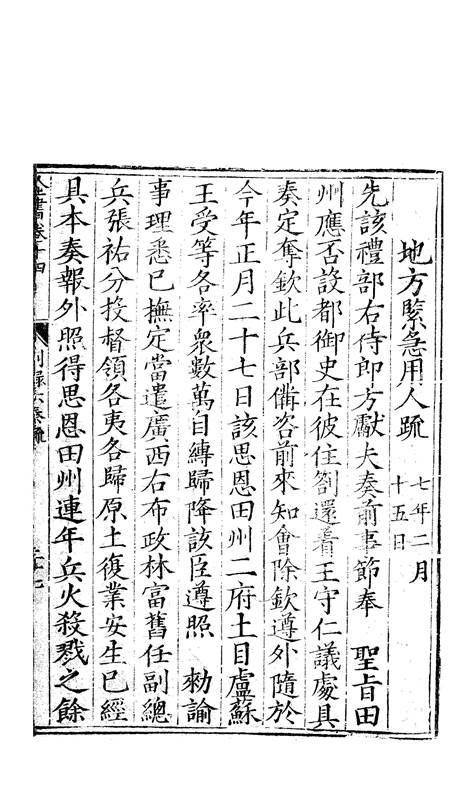 地方緊急用人疏
七年二月
十五日
先該禮部右侍郎方獻夫奏前事節奉　聖旨田
州應否設都御史在彼住劄還着王守仁議處具
奏定奪欽此兵部備咨前來知會除欽遵外隨於
今年正月二十七日該思恩田州二府土目盧蘇
王受等各率衆數萬自縛歸降該臣遵照　勑諭
事理悉已撫定當遣廣西右布政林富舊任副總
兵張祐分投督領各夷各歸原土復業安生已經
具本奏報外照得思恩田州連年兵火殺戮之餘
全書卷十四
別錄六奏疏
二十七